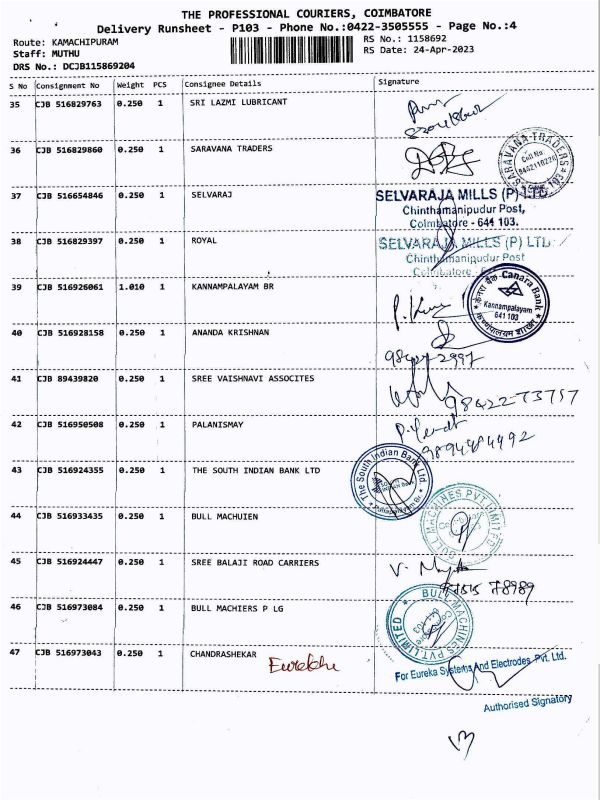 THE PROFESSIONAL COURIERS, COIMBATORE
Delivery Runsheet - P103 - Phone No.:0422-3505555 - Page No.:4
Route: KAMACHIPURAM
Staff: MUTHU
DRS No.: DCJB115869204
RS No.: 1158692
RS Date: 24-Apr-2023
S No Consignment No Weight PCS Consignee Details Signature
35 CJB 516829763 0.250 1 SRI LAZMI LUBRICANT
36 CJB 516829860 0.250 1 SARAVANA TRADERS
SARAVANA TRADERS
Cell No:
37 CJB 516654846 0.250 1 SELVARAJ
SELVARAJA MILLS (P) LTD
Chinthamanipudur Post,
Coimbatore - 641 103.
38 CJB 516829397 0.250 1 ROYAL
SELVARAJA MILLS (P) LTD
Chinthamanipudur Post
Coimbatore
39 CJB 516926061 1.010 1 KANNAMPALAYAM BR
केनरा बैंक Canara Bank
Kannampalayam
641 103
40 CJB 516928158 0.250 1 ANANDA KRISHNAN
41 CJB 89439820 0.250 1 SREE VAISHNAVI ASSOCITES
98422-73757
42 CJB 516950508 0.250 1 PALANISMAY
9894484492
43 CJB 516924355 0.250 1 THE SOUTH INDIAN BANK LTD
The South Indian Bank Ltd.
44 CJB 516933435 0.250 1 BULL MACHUIEN
BULL MACHINES PVT. LIMITED
45 CJB 516924447 0.250 1 SREE BALAJI ROAD CARRIERS
78989
46 CJB 516973084 0.250 1 BULL MACHIERS P LG
BULL MACHINES PVT. LIMITED
47 CJB 516973043 0.250 1 CHANDRASHEKAR
For Eureka Systems And Electrodes Pvt. Ltd.
Authorised Signatory